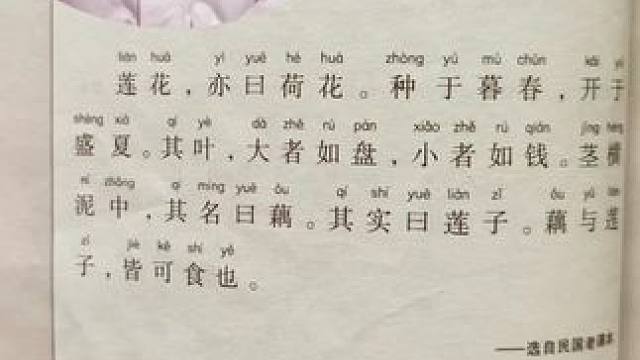 lián huā yì yuē hé huā zhòng yú mù chūn kāi
莲花，亦曰荷花。种于暮春，开于
shèng xià qí yè dà zhě rú pán xiǎo zhě rú qián jīng
盛夏。其叶，大者如盘，小者如钱。茎横
ní zhōng qí míng yuē ǒu qí shí yuē lián zǐ ǒu yǔ
泥中，其名曰藕。其实曰莲子。藕与莲
zǐ jiē kě shí yě
子，皆可食也。
——选自民国老课本